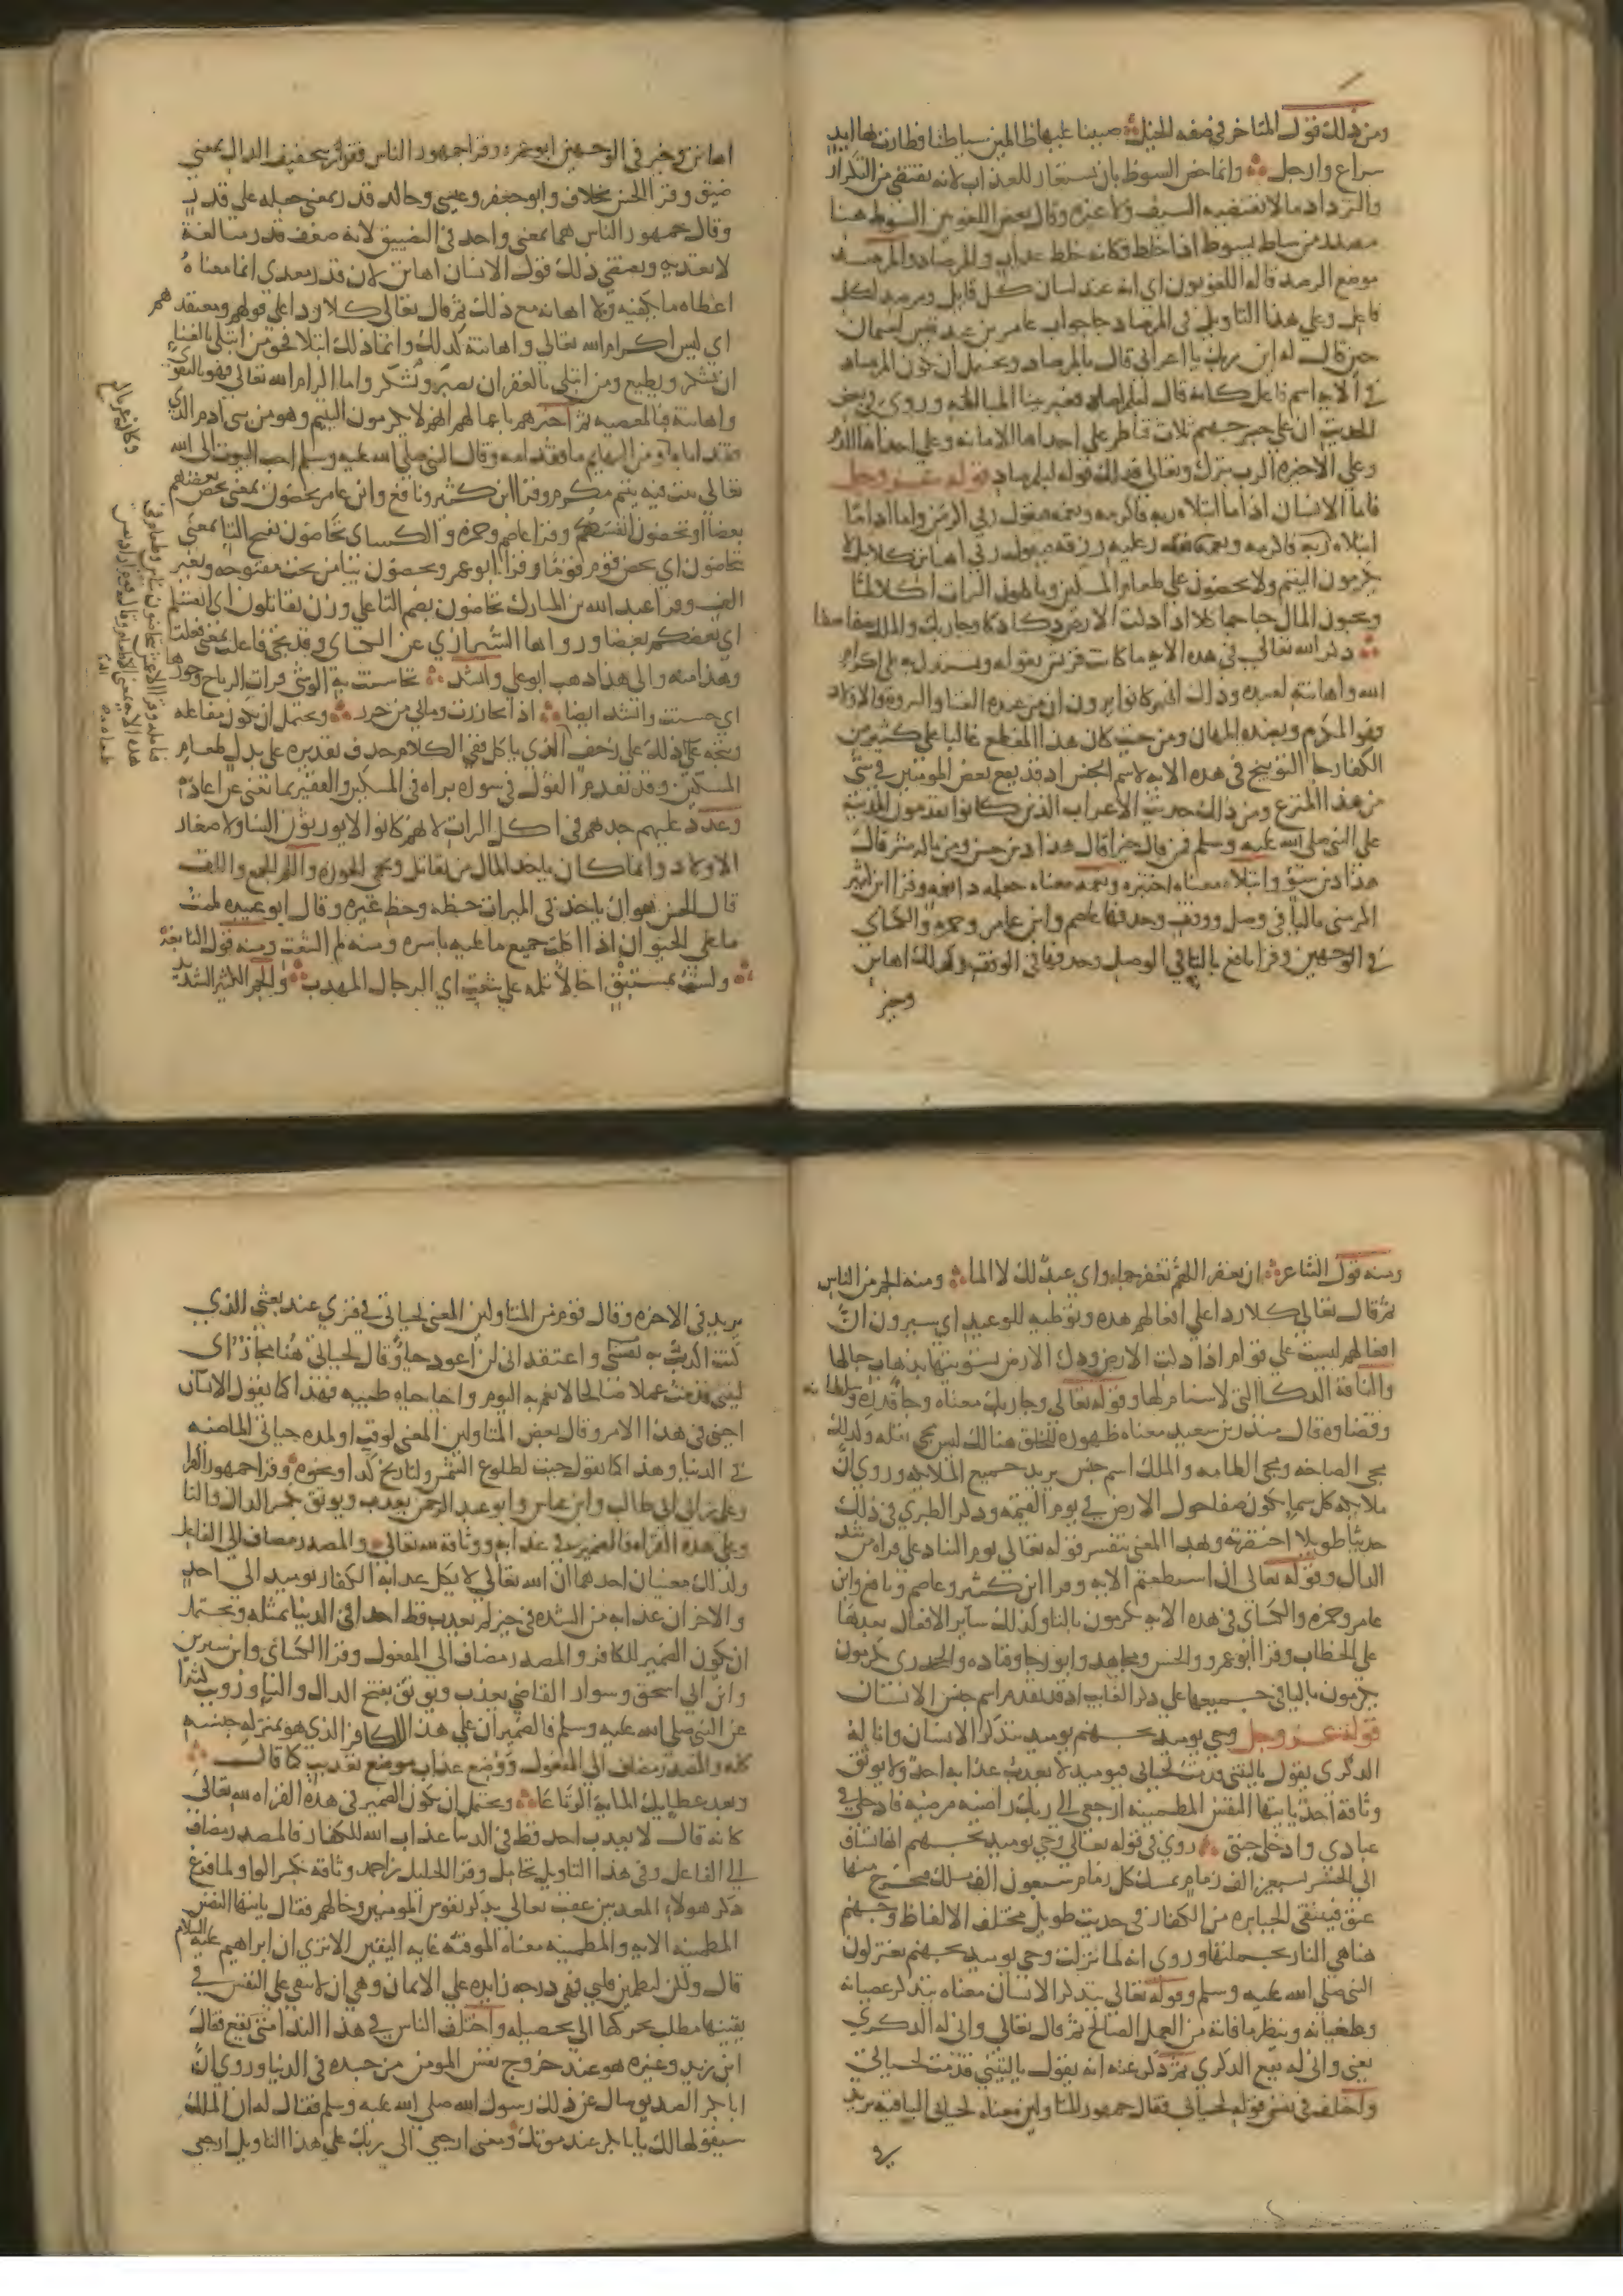 ومن ذلك قول المتاخر في صفة الخيل صببنا عليها ظالمين سياطنا فطارت بها ايد
سراع وارجل وانما خص السوط بان يستعار للعذاب لانه يقتضي من التكرار
والترداد ما لا يقتضيه السيف ولا غيره وقال بعض اللغويين السوط هنا
مصدر من ساط يسوط اذا خلط فكانه خلط عذاب والمرصاد والمرصد
موضع الرصد قاله اللغويون اي انه عند لسان كل قايل ومرصد لكل
فاعل وعلى هذا التاويل في المرصاد جا جواب عامر بن عبد قيس لعثمان
حين قال له اين ربك يا اعرابي قال بالمرصاد ويحتمل ان يكون المرصاد
في الاية اسم فاعل كانه قال لبالراصد فعبر ببنا المبالغة وروي في بعض
الحديث ان على جسر جهنم ثلاث قناطر على احداها الامانة وعلى احداها الرحم
وعلى الاخرة الرب تبرك وتعالى فذلك قوله لبالمرصاد قوله عز وجل
فاما الانسان اذا ما ابتلاه ربه فاكرمه ونعمه فيقول ربي اكرمن واما اذا ما
ابتلاه فقدر عليه رزقه فيقول ربي اهانن كلا بل لا
تكرمون اليتيم ولا تحضون على طعام المسكين وتاكلون التراث اكلا لما
وتحبون المال حبا جما كلا اذا دكت الارض دكا دكا وجا ربك والملك صفا صفا
ذكر الله تعالى في هذه الاية ما كانت قريش تقوله وتستدل به على اكرام
الله واهانته لعبده وذلك انهم كانوا يرون ان من عنده الغنا والثروة والاولاد
فهو المكرم وبضده المهان ومن حيث كان هذا المقطع غالبا على كثير من
الكفار جا التوبيخ في هذه الاية لاسم الجنس اذ قد يقع بعض المومنين في شي
من هذا المنزع ومن ذلك حديث الاعراب الذين كانوا يقدمون المدينة
على النبي صلى الله عليه وسلم فمن نال خيرا قال هذا دين حسن ومن ناله شر قال
هذا دين سوء وابتلاه معناه اختبره ونعمه معناه جعله ذا نعمة وقرا ابن كثير
اكرمني باليا في وصل ووقف وحذفها عاصم وابن عامر وحمزة والكساي
في الوجهين وقرا نافع باليا في الوصل وحذفها في الوقف وكذلك اهانن
وخير
اهانن وخير في الوجهين ابو عمرو وقرا جمهور الناس فقدر بتخفيف الدال بمعنى
ضيق وقرا الحسن بخلاف وابو جعفر وعيسى وخالد قدر بمعنى جعله على قدر
وقال جمهور الناس هما بمعنى واحد في التضييق لانه ضعف قدر مبالغة
لا تعدية ويقتضي ذلك قول الانسان اهانن لان قدر معدى انما معناه
اعطاه ما يكفيه ولا اهانة مع ذلك ثم قال تعالى كلا ردا على قولهم ومعتقدهم
اي ليس اكرام الله تعالى واهانته كذلك وانما ذلك ابتلا فحق من ابتلي بالغنا
ان يشكر ويطيع ومن ابتلي بالفقر ان يصبر ويشكر واما اكرام الله تعالى فهو بالتقوى
واهانته فبالمعصية ثم اخبرهم باعمالهم انهم لا يكرمون اليتيم وهو من بني ادم الذي
فقد اباه ومن البهايم ما فقد امه وقال النبي صلى الله عليه وسلم احب البيوت الى الله
تعالى بيت فيه يتيم مكرم وقرا ابن كثير ونافع وابن عامر يحضون بمعنى يحض بعضهم
بعضا او تحضون انفسكم وقرا عاصم وحمزة والكساي تحاضون بفتح التا بمعنى
تتحاضون اي يحض قوم قوما وقرا ابو عمرو يحضون بيا من تحت مفتوحة وبغير
الف وقرا عبد الله بن المبارك تحاضون بضم التا على وزن تقاتلون اي انفسكم
اي بعضكم بعضا ورواها الشيرازي عن الكساي وقد يجي فاعلت بمعنى فعلت
وهذا منه والى هذا ذهب ابو علي وانشد تحاسنت به الوشي قرات الرياح وخورها
اي حسنت وانشد ايضا اذا تخازرت وما بي من خزر ويحتمل ان يكون مفاعلة
ويتجه ذلك على زحف الذي ياكل ففي الكلام حذف تقديره على بذل طعام
المسكين وقد تقدم القول في سورة براه في المسكين والفقير بما يغني عن اعادة
وعدد عليهم جدهم في اكل التراث لانهم كانوا لا يورثون النسا ولا صغار
الاولاد وانما كان ياخذ المال من يقاتل ويحمي الحوزة واللم الجمع واللف
قال الحسن هو ان ياخذ في الميراث حظه وحظ غيره وقال ابو عبيدة لممت
ما على الخوان اذا اكلت جميع ما عليه باسره ومنه لم الشعث ومنه قول النابغة
ولست بمستبق اخا لا تلمه على شعث اي الرجال المهذب والجم الكثير الشديد
ومنه قول الشاعر ان تغفر اللهم تغفر جما واي عبد لك لا الما ومنه الجم من الناس
ثم قال تعالى كلا ردا على افعالهم هذه وتوطية للوعيد اي سيرون ان
افعالهم ليست على قوام اذا دكت الارض ودك الارض تسويتها بذهاب جبالها
والناقة الدكا التي لا سنام لها وقوله تعالى وجا ربك معناه وجا قدره وسلطانه
وقضاوه قال منذر بن سعيد معناه ظهوره للخلق هنالك ليس مجي نقله وكذلك
مجي الصاخة ومجي الطامة والملك اسم جنس يريد جميع الملايكة وروي ان
ملايكة كل سما يكون صفا حول الارض في يوم القيمة وذكر الطبري في ذلك
حديثا طويلا اختصرته وبهذا المعنى يتفسر قوله تعالى يوم التناد على قراة من شد
الدال وقوله تعالى ان استطعتم الاية وقرا ابن كثير وعاصم ونافع وابن
عامر وحمزة والكساي في هذه الاية تكرمون بالتا وكذلك ساير الافعال بعدها
على الخطاب وقرا ابو عمرو والحسن ومجاهد وابو رجا وقتاده والجحدري يكرمون
يكرمون باليا في جميعها على ذكر الغايب اذ قد تقدم اسم جنس الانسان
قوله عز وجل وجي يوميذ بجهنم يوميذ يتذكر الانسان وانى له
الذكرى يقول يا ليتني قدمت لحياتي فيوميذ لا يعذب عذابه احد ولا يوثق
وثاقه احد يايتها النفس المطمينة ارجعي الى ربك راضية مرضية فادخلي في
عبادي وادخلي جنتي روي في قوله تعالى وجي يوميذ بجهنم انها تساق
الى الحشر بسبعين الف زمام يمسك كل زمام سبعون الف ملك فيخرج منها
عنق فينتقي الجبابرة من الكفار في حديث طويل مختلف الالفاظ وجهنم
هنا هي النار بجملتها وروي انه لما نزلت وجي يوميذ بجهنم تغير لون
النبي صلى الله عليه وسلم وقوله تعالى يتذكر الانسان معناه يتذكر عصيانه
وطغيانه وينظر ما فاته من العمل الصالح ثم قال تعالى وانى له الذكرى
يعني وانى له نفع الذكرى ثم ذكر عنه انه يقول يا ليتني قدمت لحياتي
واختلف في تفسير قوله لحياتي فقال جمهور المتاولين معناه لحياتي الباقية يريد
يريد في الاخرة وقال قوم من المتاولين المعنى لحياتي في قبري عند بعثي الذي
كنت اكذب به واعتقد اني لن اعود حيا وقال لحياتي هنا مجاز اي
ليتني قدمت عملا صالحا لانعم به اليوم واحيا حياة طيبة فهذا كما يقول الانسان
احيني في هذا الامر وقال بعض المتاولين المعنى لوقت او لمدة حياتي الماضية
في الدنيا وهذا كما تقول جيت لطلوع الشمس ولتاريخ كذا ونحوه وقرا جمهور القرا
وعلي بن ابي طالب وابن عباس وابو عبد الرحمن يعذب ويوثق بكسر الذال والثا
وعلى هذه القراة فالضمير في عذابه ووثاقه لله تعالى والمصدر مضاف الى الفاعل
ولذلك معنيان احدهما ان الله تعالى لا يكل عذاب الكفار يوميذ الى احد
والاخر ان عذابه من الشدة في حيز لم يعذب قط احد في الدنيا بمثله ويحتمل
ان يكون الضمير للكافر والمصدر مضاف الى المفعول وقرا الكساي وابن سيرين
وابن ابي اسحق وسوار القاضي يعذب ويوثق بفتح الذال والثا وروي كثيرا
عن النبي صلى الله عليه وسلم فالضميران على هذا للكافر الذي هو بمنزلة جنسه
كله والمصدر مضاف الى المفعول ووضع عذاب موضع تعذيب كما قال
وبعد عطايك الماية الرتاعا ويحتمل ان يكون الضمير في هذه القراة لله تعالى
كانه قال لا يعذب احد قط في الدنيا عذاب الله للكفار فالمصدر مضاف
الى الفاعل وفي هذا التاويل تحامل وقرا الخليل بن احمد وثاقه بكسر الواو ولما فرغ
ذكر هولا المعذبين عقب تعالى بذكر نفوس المومنين وحالهم فقال يايتها النفس
المطمينة الاية والمطمينة معناه الموقنة غاية اليقين الا ترى ان ابراهيم عليه السلام
قال ولكن ليطمين قلبي فهي درجة زايدة على الايمان وهي ان لا يبقى على النفس في
يقينها مطلب يحركها الى تحصيله واختلف الناس في هذا الندا متى يقع فقال
ابن زيد وغيره هو عند خروج نفس المومن من جسده في الدنيا وروي ان
ابا بكر الصديق سال عن ذلك رسول الله صلى الله عليه وسلم فقال له ان الملك
سيقولها لك يا ابا بكر عند موتك ومعنى ارجعي الى ربك على هذا التاويل ارجعي